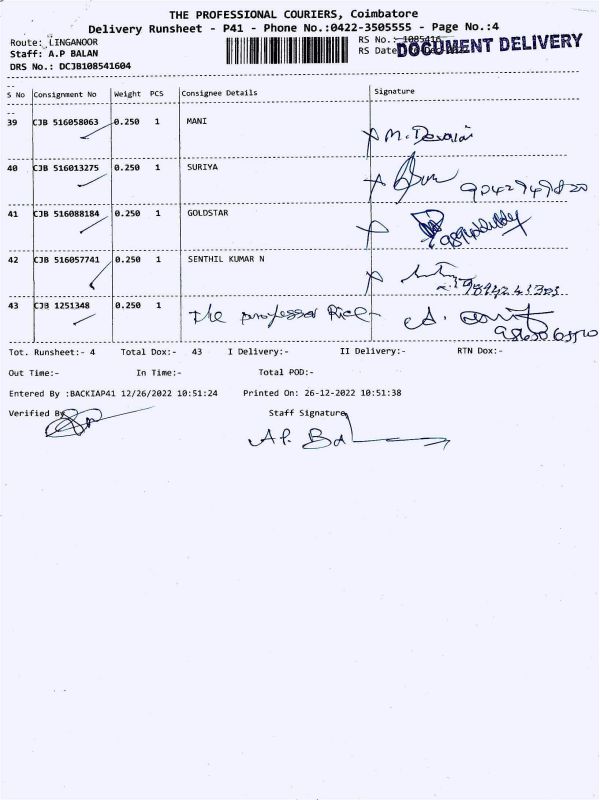 THE PROFESSIONAL COURIERS, Coimbatore
Delivery Runsheet - P41 - Phone No.:0422-3505555 - Page No.:4
Route: LINGANOOR
RS No.: 1085416
Staff: A.P BALAN
RS Date
DOCUMENT DELIVERY
DRS No.: DCJB108541604
S No Consignment No Weight PCS Consignee Details Signature
39 CJB 516058063 0.250 1 MANI
M.
40 CJB 516013275 0.250 1 SURIYA
41 CJB 516088184 0.250 1 GOLDSTAR
42 CJB 516057741 0.250 1 SENTHIL KUMAR N
43 CJB 1251348 0.250 1 The professor
Tot. Runsheet:- 4 Total Dox:- 43 I Delivery:- II Delivery:- RTN Dox:-
Out Time:- In Time:- Total POD:-
Entered By :BACKIAP41 12/26/2022 10:51:24 Printed On: 26-12-2022 10:51:38
Verified By Staff Signature
A.P. Bal